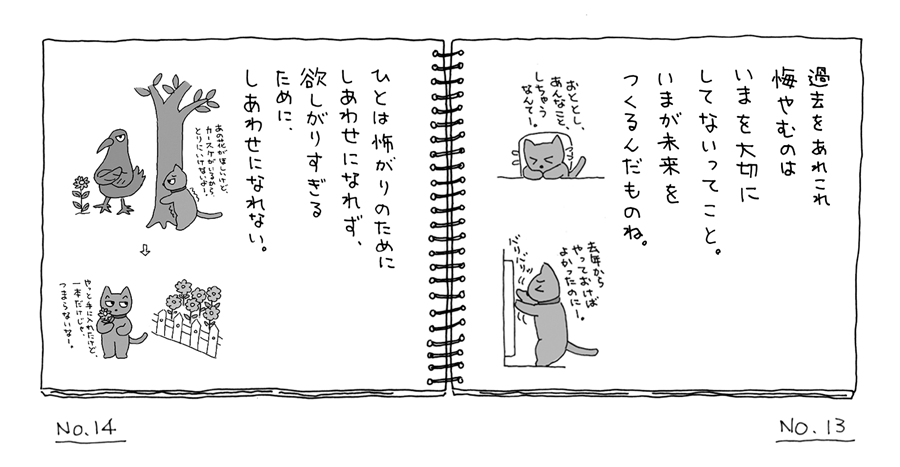 過去をあれこれ
悔やむのは
いまを大切に
してないってこと。
いまが未来を
つくるんだものね。
おととし、
あんなこと、
しちゃう
なんてー。
去年から
やっておけば
よかったのにー。
バリバリ
No.13
ひとは怖がりのために
しあわせになれず、
欲しがりすぎる
ために、
しあわせになれない。
あの花がほしいけど、
カースケがいるから、
とりにいけないよー。
やっと手に入れたけど、
一本だけじゃ、
つまらないなー。
No.14